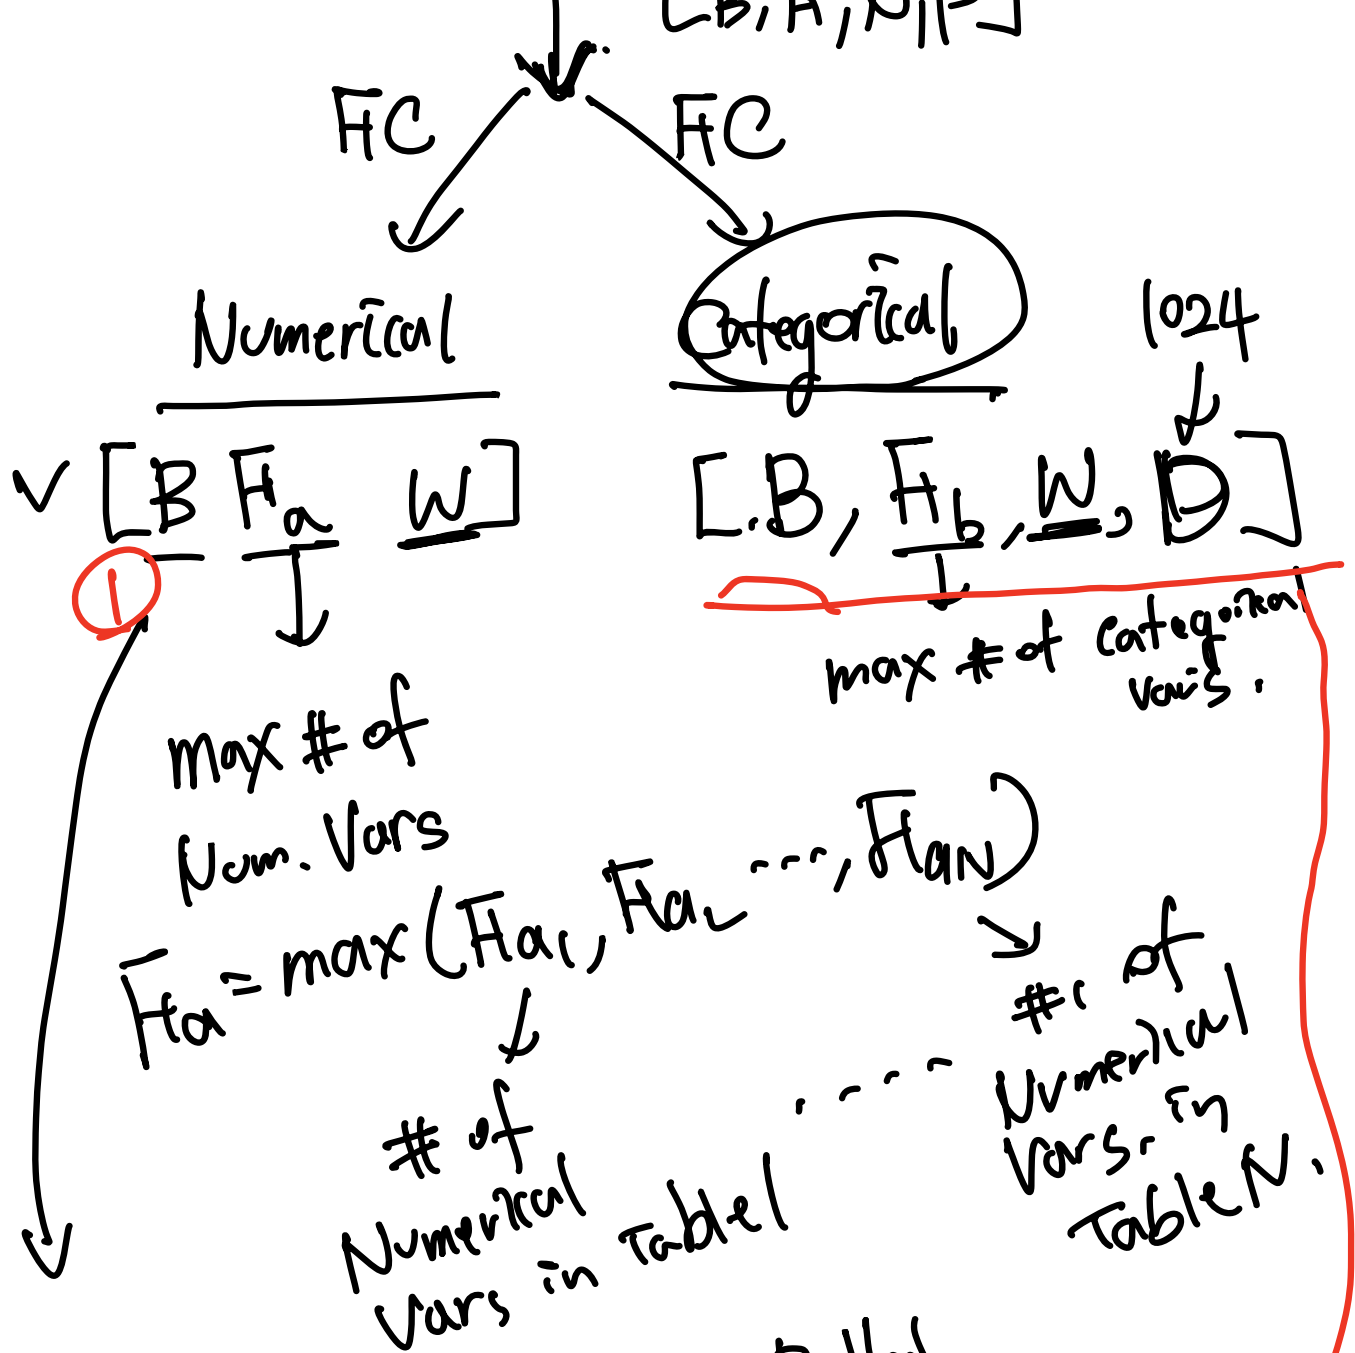 FC FC
Numerical Categorical 1024
[B Fa W] [B, Fb, W, D]
1
max # of categorical
vars.
max # of
Num. Vars
Fa = max (Fa1, Fa2 ...., FaN)
# of
Numerical
vars in Table 1
....
# of
Numerical
vars. in
Table N.